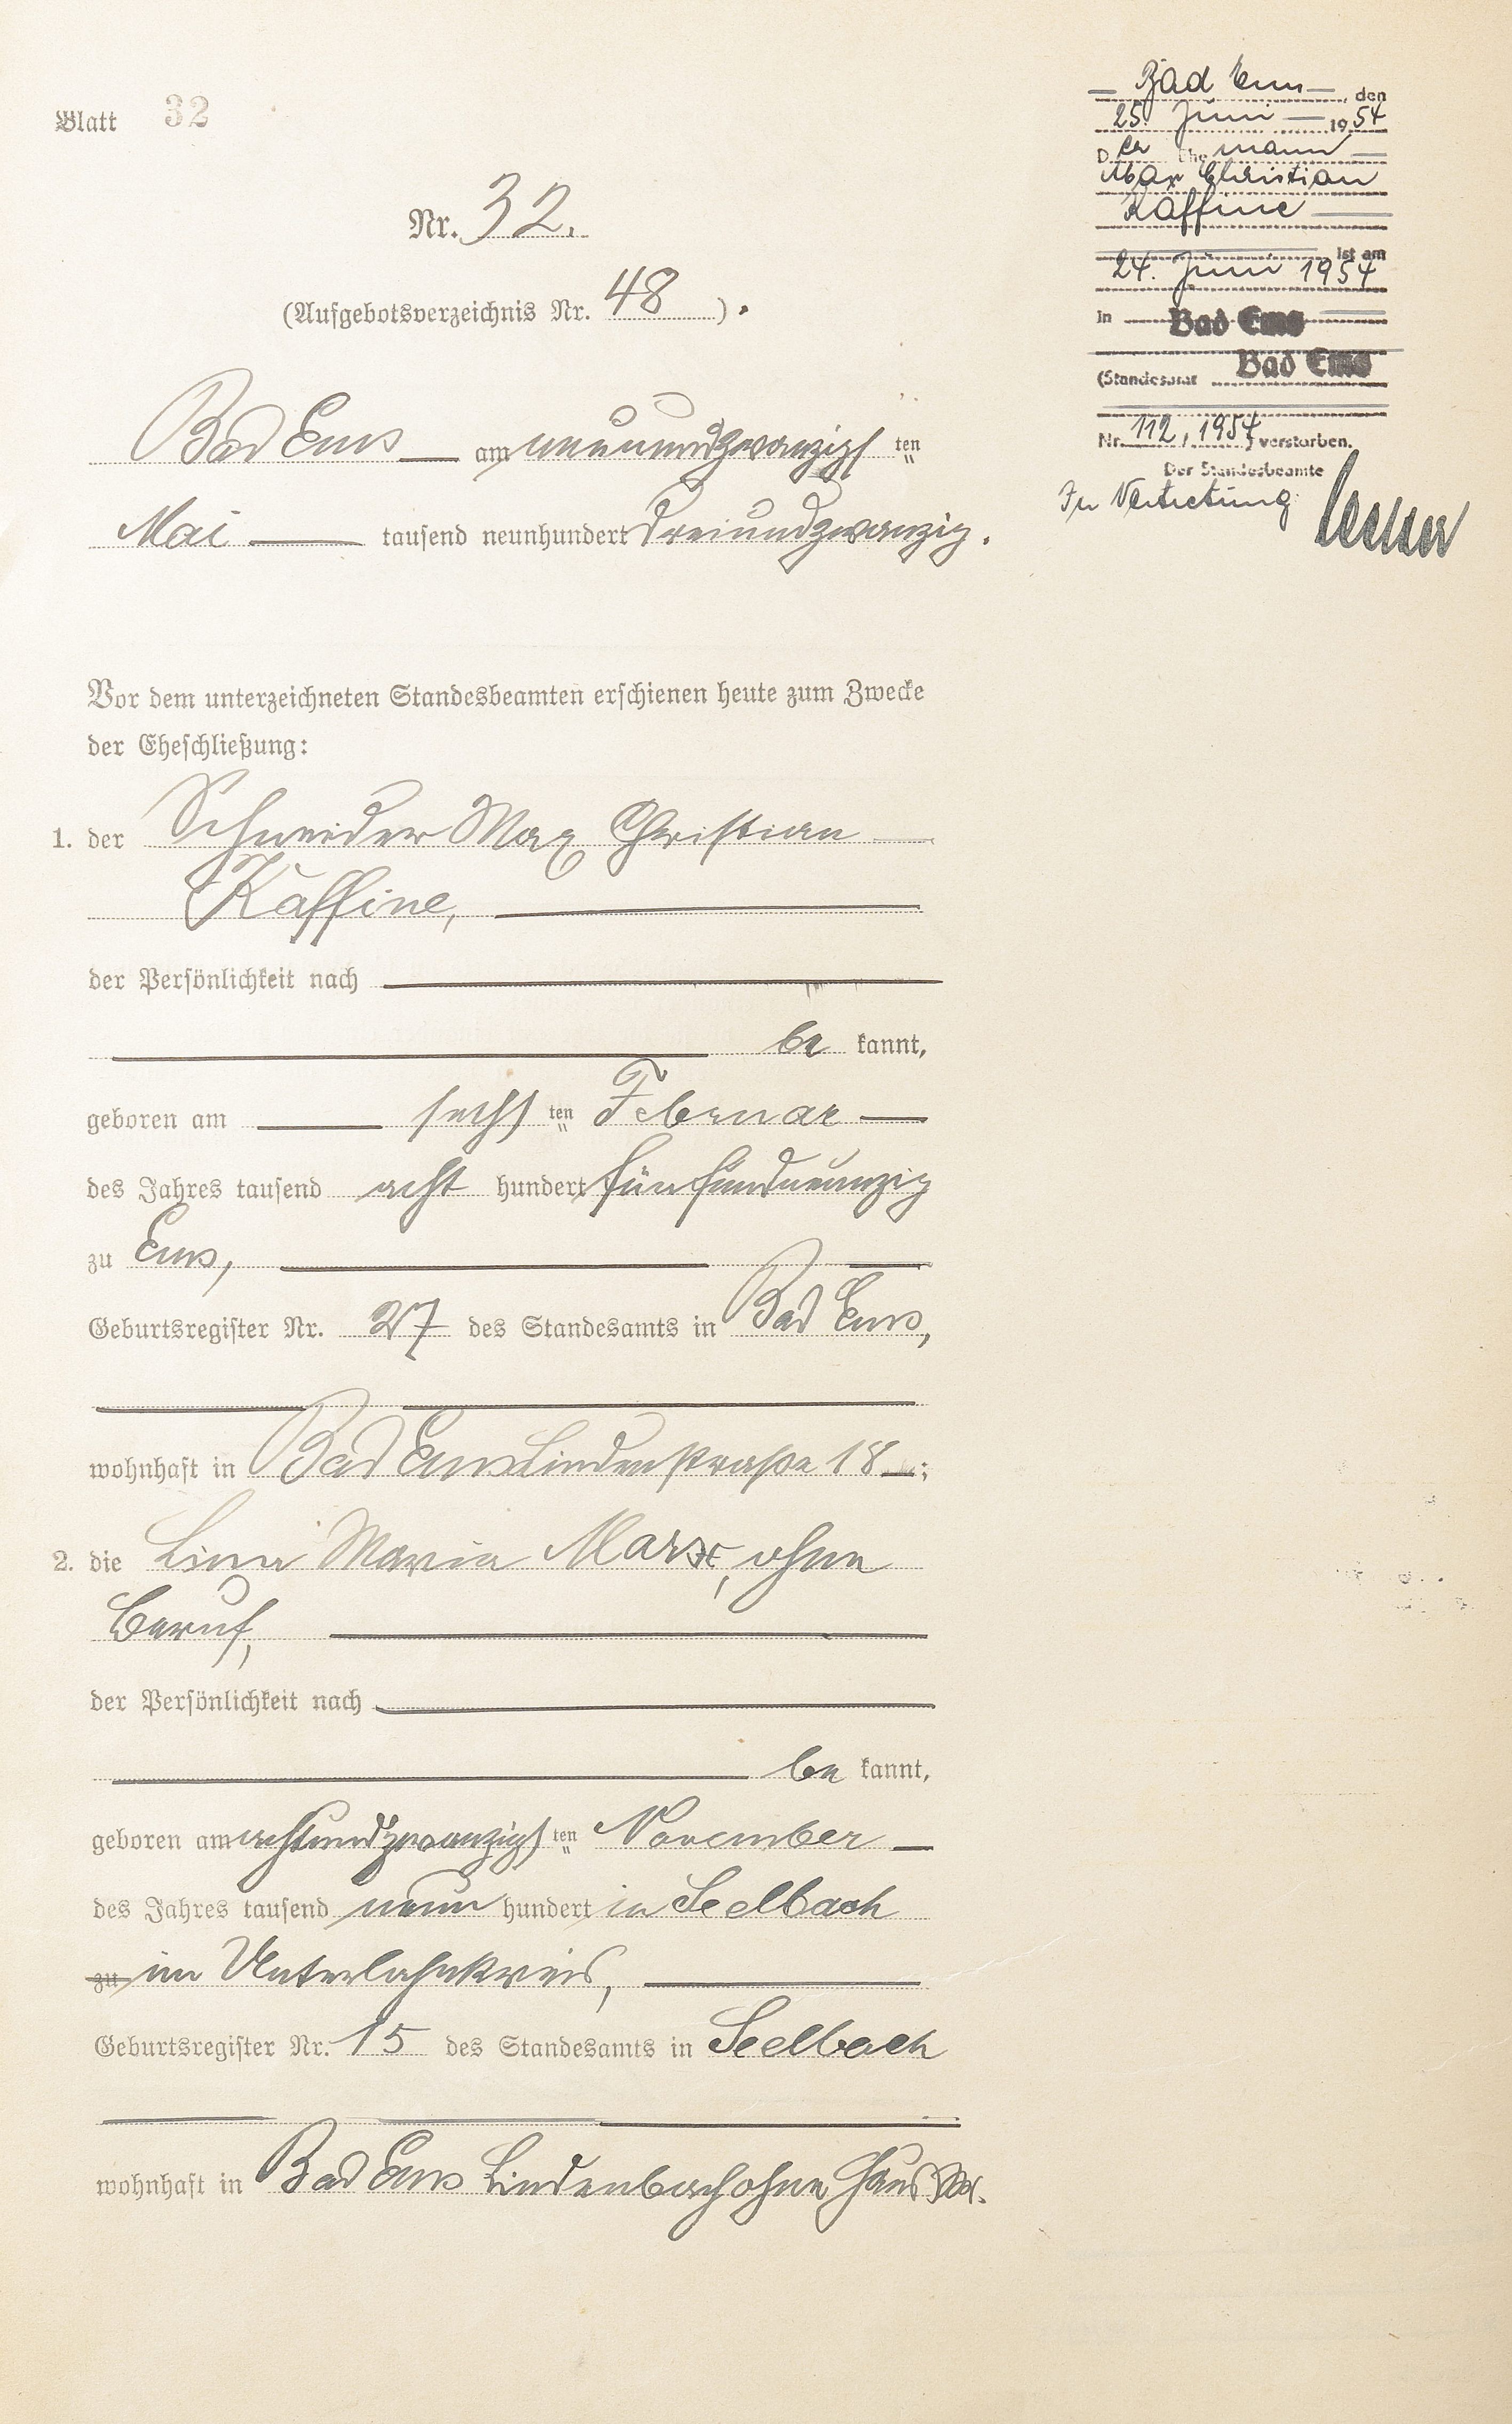 Blatt 32
Nr. 32.
(Aufgebotsverzeichnis Nr. 48).
Bad Ems am neunundzwanzigsten
Mai tausend neunhundert dreiundzwanzig.
Vor dem unterzeichneten Standesbeamten erschienen heute zum Zwecke
der Eheschließung:
1. der Schneider Max Christian
Kaffine,
der Persönlichkeit nach
be kannt,
geboren am sechsten Februar
des Jahres tausend acht hundert fünfundneunzig
zu Ems,
Geburtsregister Nr. 27 des Standesamts in Bad Ems,
wohnhaft in Bad Ems Lindenstraße 18;
2. die Lina Maria Marx, ohne
Beruf,
der Persönlichkeit nach
be kannt,
geboren am achtundzwanzigsten November
des Jahres tausend neun hundert in Seelbach
zu im Unterlahnkreis,
Geburtsregister Nr. 15 des Standesamts in Seelbach
wohnhaft in Bad Ems Lindenbach ohne Haus Nr.
Bad Ems, den
25. Juni 1954
Der Ehemann
Max Christian
Kaffine
ist am
24. Juni 1954
in Bad Ems
(Standesamt Bad Ems
Nr. 112, 1954) verstorben.
Der Standesbeamte
In Vertretung: